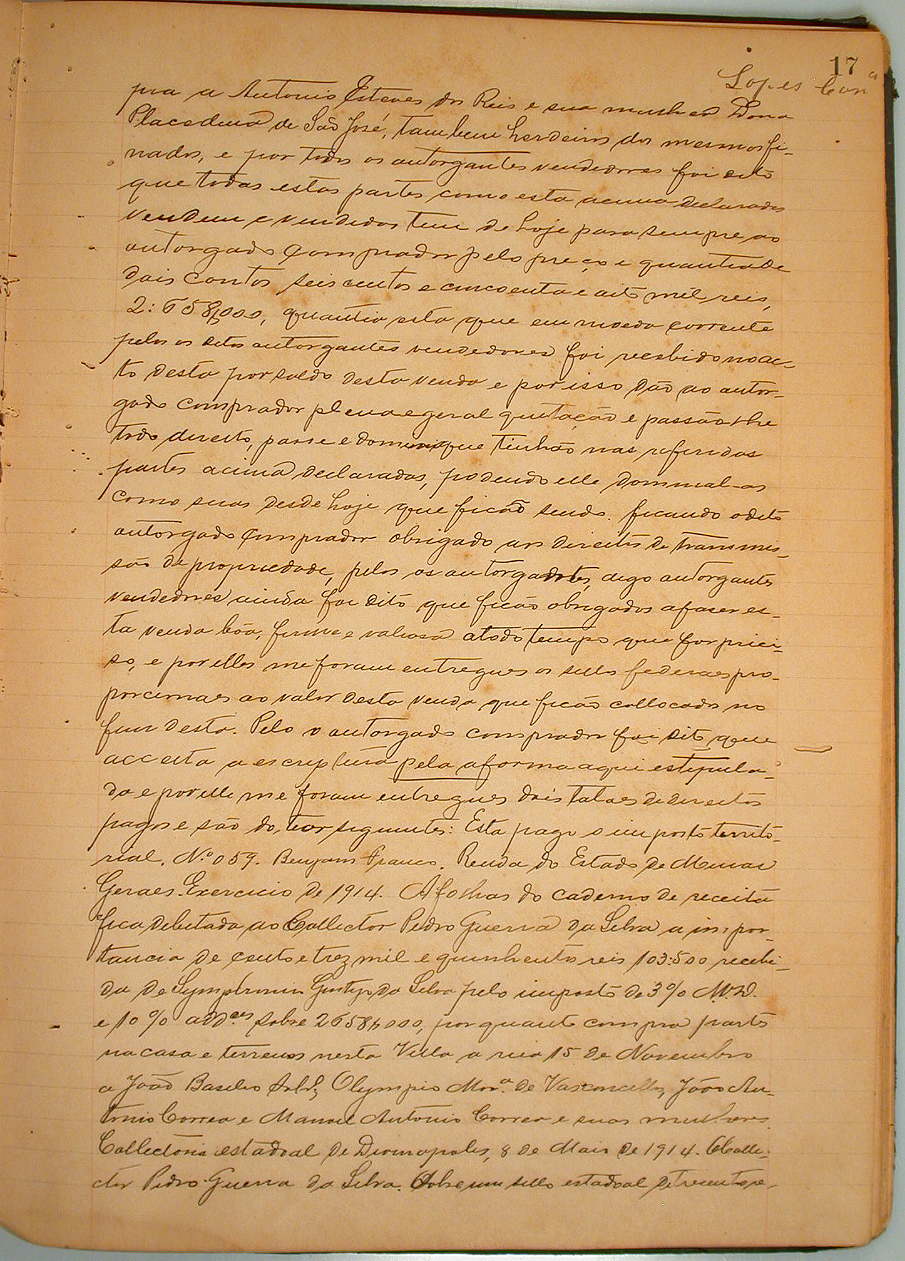 17
Lopes Conº
pra a Antonio Esteves dos Reis e sua mulher Dona
Placedina de São José, tambem herdeiros dos mesmos fi-
nados, e por todos os outorgantes vendedores foi dito
que todas estas partes como esta acima declarados
vendem e vendidos tem de hoje para sempre, ao
outorgado comprador pelo preço e quantia de
dois contos seis centos e cincoenta e oito mil reis,
2:658,000, quantia esta que em moeda corrente
pelos os ditos outorgantes vendedores foi recebido no ac-
to desta por saldo desta venda e por isso dão ao outor-
gado comprador plena e geral quitação e passão-lhe
todo direito, posse e dominio que tinhão nas referidas
partes acima declaradas, podendo elle dominal-as
como suas desde hoje que ficão sendo. ficando o dito
outorgado comprador obrigado aos direitos de transmis-
são de propriedade, pelos os outorgadotes, digo outorgantes
vendedores ainda foi dito que ficão obrigados a faser es-
ta venda bôa, firme e valiosa a todo tempo que for preci-
so, e por elles me foram entregues os sellos federaes pro-
porcionaes ao valor desta venda que ficão collocados no
fim desta. Pelo o outorgado comprador foi dito que
acceita a escriptura pela a forma aqui estipula-
da e por elle me foram entregues dois talões de direitos
pagos e são do teor seguintes: Esta pago o imposto territó-
rial. Nº 059. Benjam Franco. Renda do Estado de Minas
Geraes. Exercicio de 1914. A folhas do caderno de receita
fica debitada ao Collector Pedro Guerra da Silva a impor-
tancia de cento e trez mil e quinhento reis 103:500 recebi-
da de Symphronio da Silva pelo imposto de 3% M.D.
e 10% addes sobre 2658,000, por quanto compra partes
na casa e terrenos nesta Villa a rua 15 de Novembro
a João Basilio Olympio Morª de Vasconcellos, João An-
tonio Correa e Manoel Antonio Correa e suas mulheres.
Collectoria estadoal de 8 de Maio de 1914. O Colle-
ctor Pedro Guerra da Silva. Sobre um sello estadoal de tresentos re-